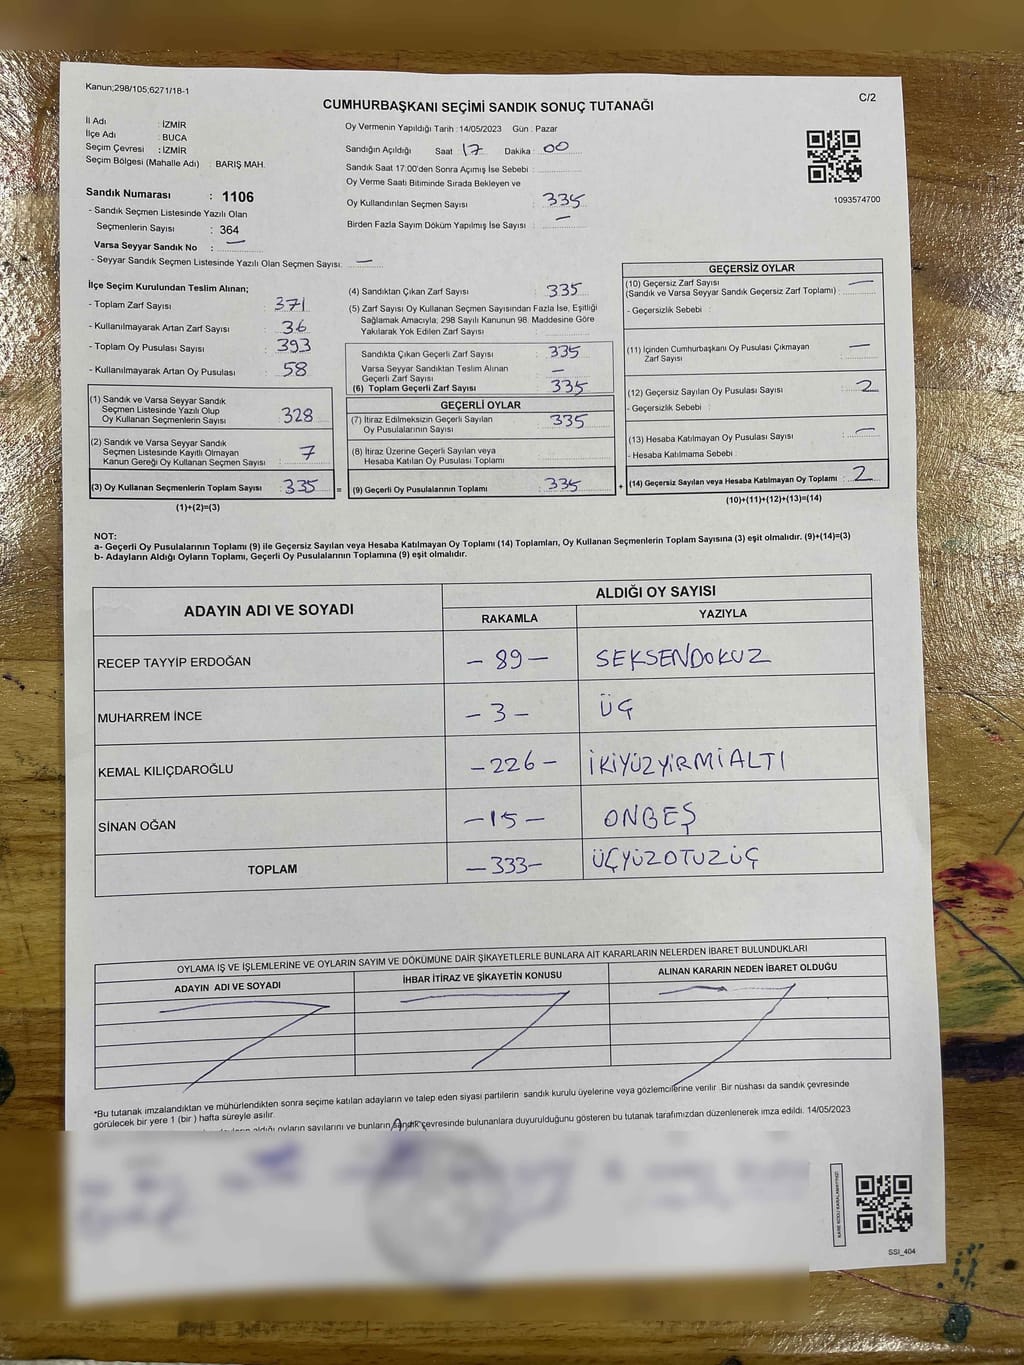 Kanun;298/105;6271/18-1
CUMHURBAŞKANI SEÇİMİ SANDIK SONUÇ TUTANAĞI
C/2
İl Adı : İZMİR
İlçe Adı : BUCA
Seçim Çevresi : İZMİR
Seçim Bölgesi (Mahalle Adı) : BARIŞ MAH.
Sandık Numarası : 1106
- Sandık Seçmen Listesinde Yazılı Olan
Seçmenlerin Sayısı : 364
Varsa Seyyar Sandık No : —
- Seyyar Sandık Seçmen Listesinde Yazılı Olan Seçmen Sayısı: —
Oy Vermenin Yapıldığı Tarih : 14/05/2023 Gün : Pazar
Sandığın Açıldığı Saat : 17 Dakika : 00
Sandık Saat 17:00'den Sonra Açımış İse Sebebi :
Oy Verme Saati Bitiminde Sırada Bekleyen ve
Oy Kullandırılan Seçmen Sayısı : 335
Birden Fazla Sayım Döküm Yapılmış İse Sayısı : —
1093574700
İlçe Seçim Kurulundan Teslim Alınan;
- Toplam Zarf Sayısı : 371
- Kullanılmayarak Artan Zarf Sayısı : 36
- Toplam Oy Pusulası Sayısı : 393
- Kullanılmayarak Artan Oy Pusulası : 58
(1) Sandık ve Varsa Seyyar Sandık
Seçmen Listesinde Yazılı Olup
Oy Kullanan Seçmenlerin Sayısı : 328
(2) Sandık ve Varsa Seyyar Sandık
Seçmen Listesinde Kayıtlı Olmayan
Kanun Gereği Oy Kullanan Seçmen Sayısı : 7
(3) Oy Kullanan Seçmenlerin Toplam Sayısı : 335
(1)+(2)=(3)
(4) Sandıktan Çıkan Zarf Sayısı : 335
(5) Zarf Sayısı Oy Kullanan Seçmen Sayısından Fazla İse, Eşitliği
Sağlamak Amacıyla; 298 Sayılı Kanunun 98. Maddesine Göre
Yakılarak Yok Edilen Zarf Sayısı :
Sandıkta Çıkan Geçerli Zarf Sayısı : 335
Varsa Seyyar Sandıktan Teslim Alınan
Geçerli Zarf Sayısı : —
(6) Toplam Geçerli Zarf Sayısı : 335
GEÇERLİ OYLAR
(7) İtiraz Edilmeksizin Geçerli Sayılan
Oy Pusulalarının Sayısı : 335
(8) İtiraz Üzerine Geçerli Sayılan veya
Hesaba Katılan Oy Pusulası Toplamı :
= (9) Geçerli Oy Pusulalarının Toplamı : 335
GEÇERSİZ OYLAR
(10) Geçersiz Zarf Sayısı
(Sandık ve Varsa Seyyar Sandık Geçersiz Zarf Toplamı) : —
- Geçersizlik Sebebi :
(11) İçinden Cumhurbaşkanı Oy Pusulası Çıkmayan
Zarf Sayısı : —
(12) Geçersiz Sayılan Oy Pusulası Sayısı : 2
- Geçersizlik Sebebi :
(13) Hesaba Katılmayan Oy Pusulası Sayısı : —
- Hesaba Katılmama Sebebi :
+ (14) Geçersiz Sayılan veya Hesaba Katılmayan Oy Toplamı : 2
(10)+(11)+(12)+(13)=(14)
NOT:
a- Geçerli Oy Pusulalarının Toplamı (9) ile Geçersiz Sayılan veya Hesaba Katılmayan Oy Toplamı (14) Toplamları, Oy Kullanan Seçmenlerin Toplam Sayısına (3) eşit olmalıdır. (9)+(14)=(3)
b- Adayların Aldığı Oyların Toplamı, Geçerli Oy Pusulalarının Toplamına (9) eşit olmalıdır.
ADAYIN ADI VE SOYADI
ALDIĞI OY SAYISI
RAKAMLA YAZIYLA
RECEP TAYYİP ERDOĞAN - 89 - SEKSENDOKUZ
MUHARREM İNCE - 3 - ÜÇ
KEMAL KILIÇDAROĞLU - 226 - İKİYÜZYİRMİALTI
SİNAN OĞAN - 15 - ONBEŞ
TOPLAM - 333 - ÜÇYÜZOTUZÜÇ
OYLAMA İŞ VE İŞLEMLERİNE VE OYLARIN SAYIM VE DÖKÜMÜNE DAİR ŞİKAYETLERLE BUNLARA AİT KARARLARIN NELERDEN İBARET BULUNDUKLARI
ADAYIN ADI VE SOYADI İHBAR İTİRAZ VE ŞİKAYETİN KONUSU ALINAN KARARIN NEDEN İBARET OLDUĞU
*Bu tutanak imzalandıktan ve mühürlendikten sonra seçime katılan adayların ve talep eden siyasi partilerin sandık kurulu üyelerine veya gözlemcilerine verilir .Bir nüshası da sandık çevresinde
görülecek bir yere 1 (bir ) hafta süreyle asılır.
aldığı oyların sayılarını ve bunların sandık çevresinde bulunanlara duyurulduğunu gösteren bu tutanak tarafımızdan düzenlenerek imza edildi. 14/05/2023
KARE KODU KARALAMAYINIZ!
SSİ_404